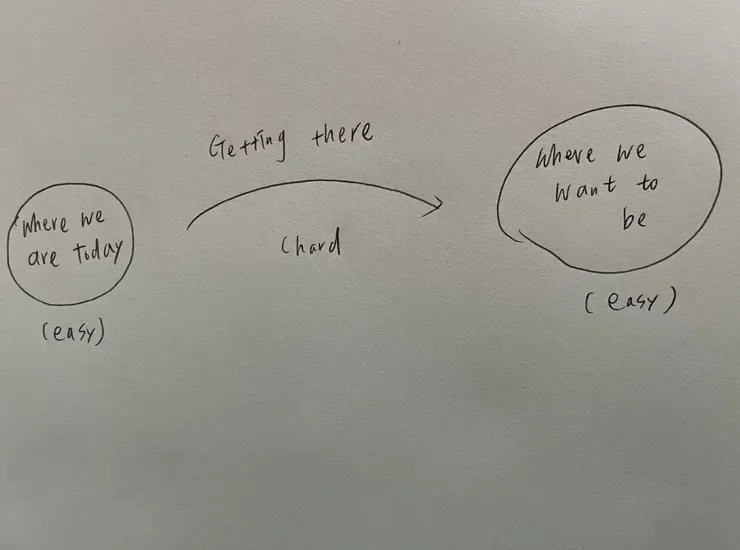 Getting there
Where we
are today
(easy)
(hard
Where we
want to
be
(easy)